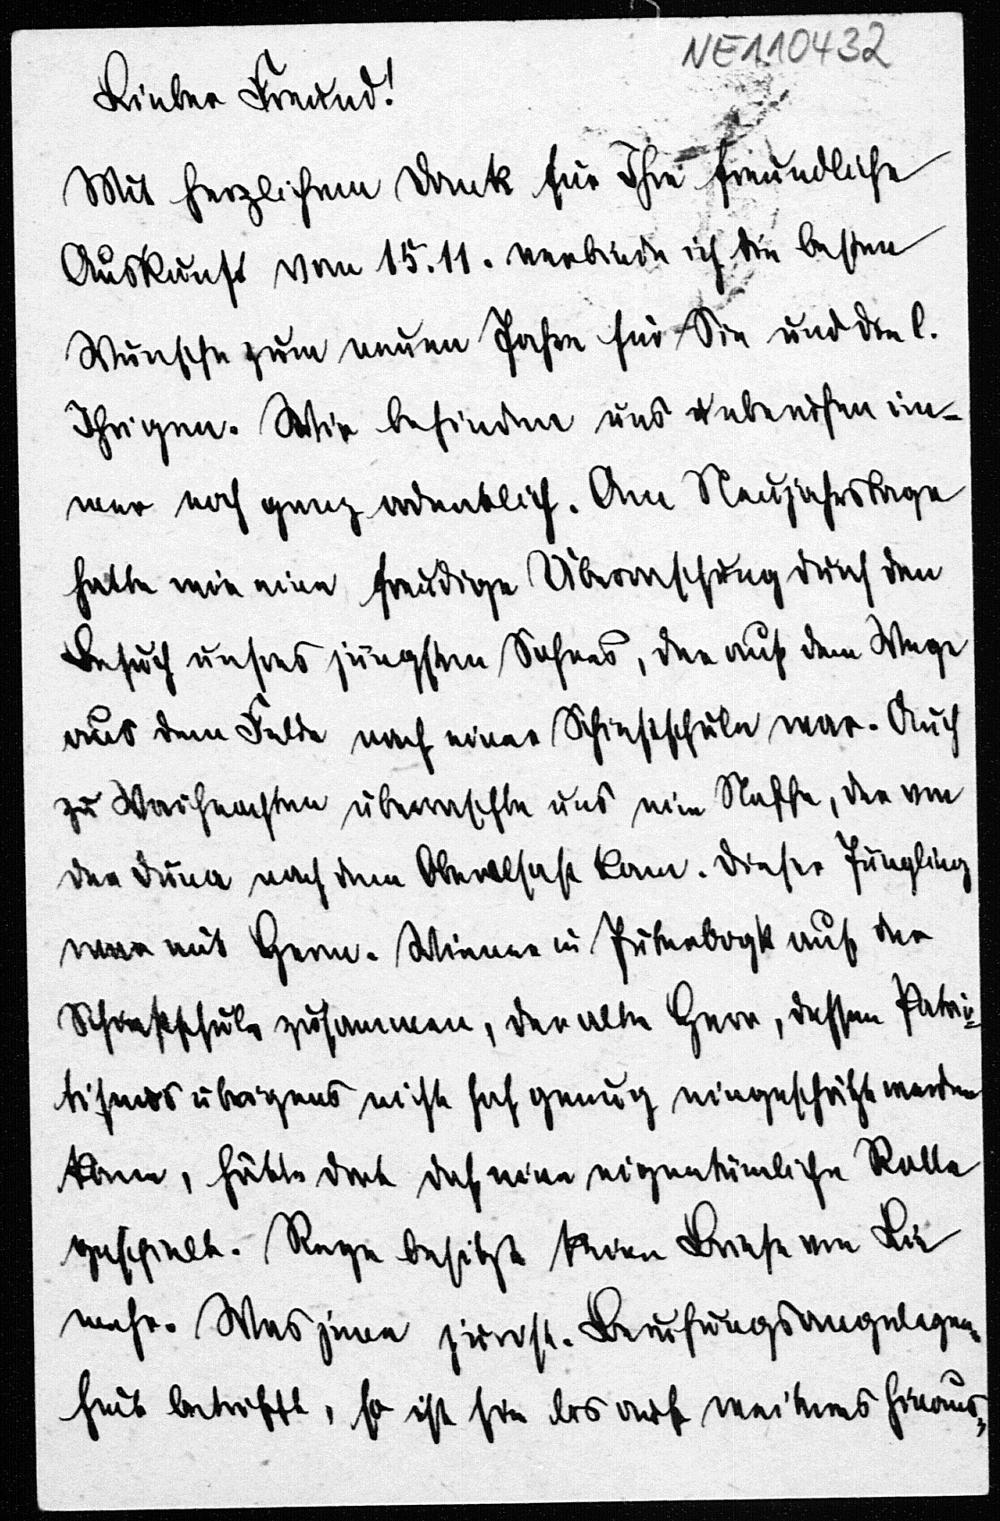 NE110432
Lieber Freund!
Mit herzlichem Dank für Ihre freundliche
Auskunft vom 15.11. verbinde ich die besten
Wünsche zum neuen Jahre für Sie und die l.
Ihrigen. Wir befinden uns im-
mer noch ganz ordentlich. Am Neujahrstage
hatte wir eine freudige Überraschung durch den
Besuch unsres jüngsten Sohnes, der auf dem Wege
aus dem Felde nach einer Schiessschule war. Auch
zu Weihnachten überraschte uns ein Neffe, der von
der Düna nach dem Oberelsass kam. Dieser Jüngling
war mit Herm. Wiener in Jüterbogk auf der
Schiessschule zusammen, der alte Herr, dessen Patrio-
tismus übrigens nicht hoch genug eingeschätzt werden
kann, hätte dort doch eine eigentümliche Rolle
gespielt. Reye besitzt keine Briefe von Lie
mehr. Was jene Berufungsangelegen-
heit betrifft, so ist sie bis auf weiteres hinaus-